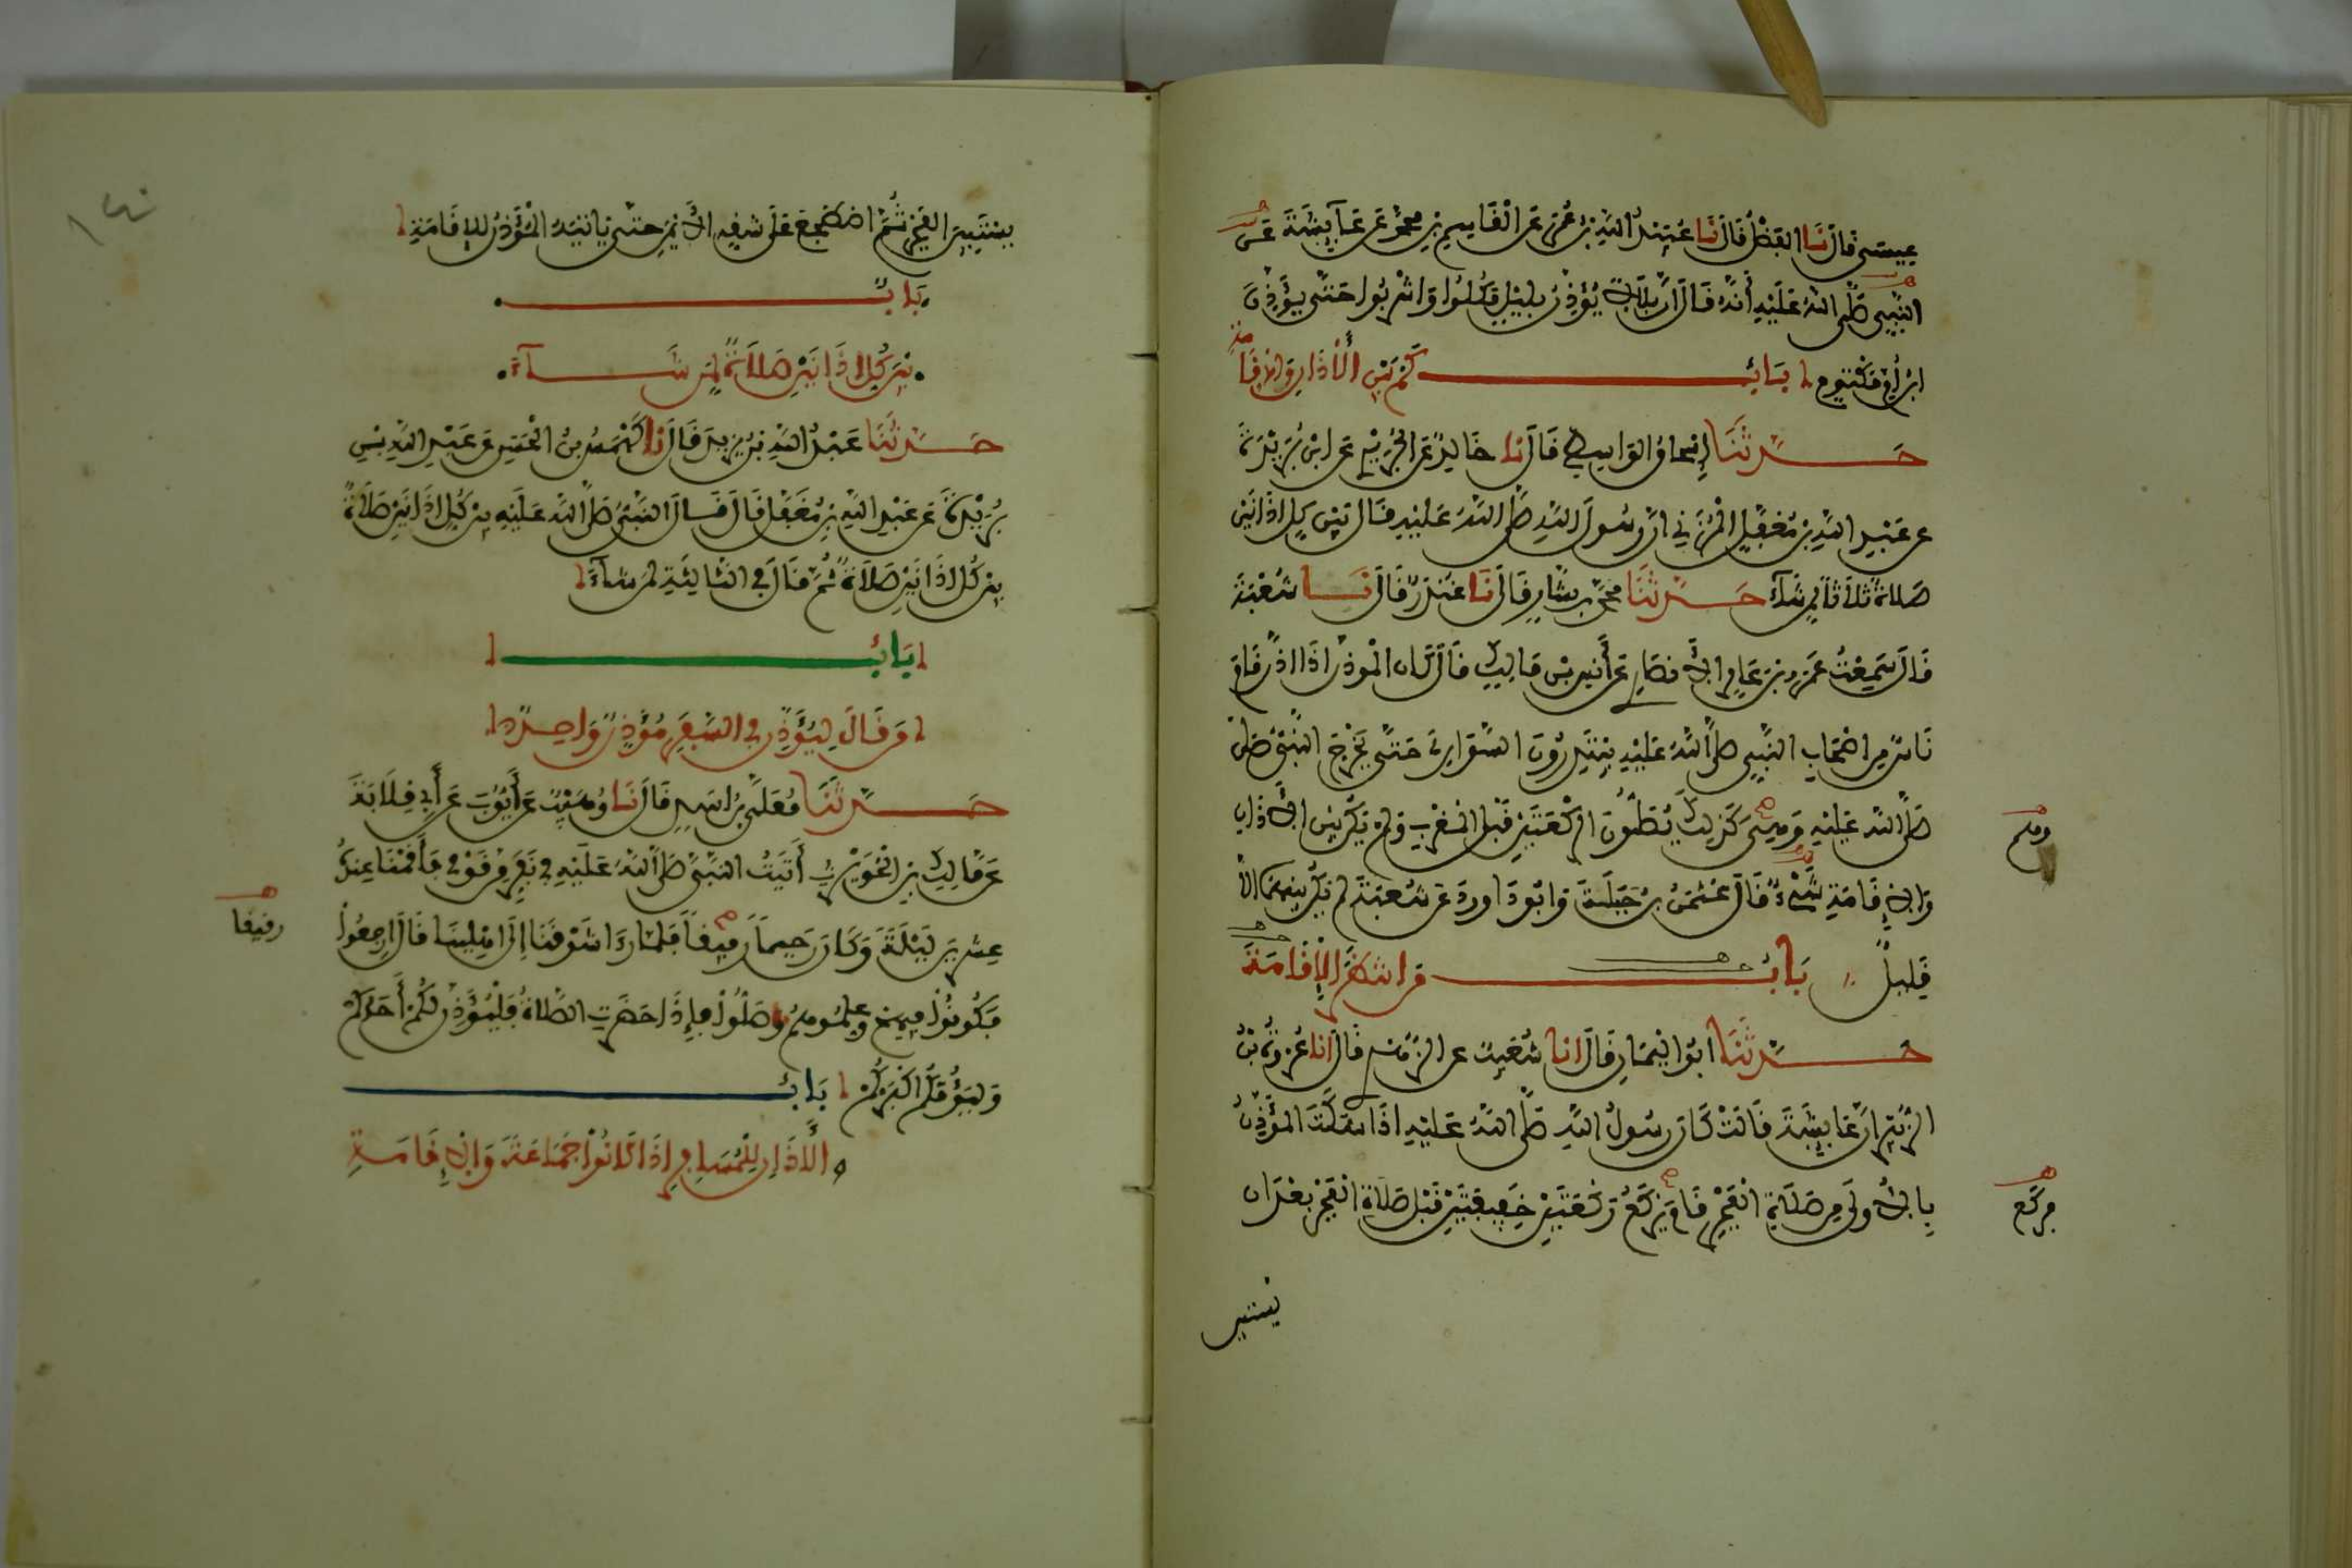 عيسى قال نا الفضل قال نا عبيد الله بن عمر عن القاسم بن محمد عن عايشة عن
النبي صلى الله عليه أنه قال ان بلالا يؤذن بليل فكلوا واشربوا حتى يؤذن
ابن أم مكتوم باب كم بين الأذان والإقامة
حدثنا إسحاق الواسطي قال نا خالد عن الجريري عن ابن بريدة
عن عبد الله بن مغفل المزني ان رسول الله صلى الله عليه قال بين كل اذانين
صلاة ثلاثا لمن شاء حدثنا محمد بن بشار قال نا غندر قال نا شعبة
قال سمعت عمرو بن عامر الانصاري عن أنس بن مالك قال كان الموذن اذا اذن قام
ناس من اصحاب النبي صلى الله عليه يبتدرون السواري حتى يخرج النبي صلى
صلى الله عليه وهي كذلك يصلون الركعتين قبل المغرب ولم يكن بين الاذان
وهم
والإقامة شيء قال عثمن بن جبلة وابو داوود عن شعبة لم يكن بينهما الا
قليل باب من انتظر الإقامة
حدثنا ابو اليمان قال انا شعيب عن الزهري قال انا عروة بن
الزبير ان عايشة قالت كان رسول الله صلى الله عليه اذا سكت المؤذن
بالأولى من صلاة الفجر قام يركع ركعتين خفيفتين قبل صلاة الفجر بعد ان
فركع
يستبين
يستبين الفجر ثم اضطجع على شقه الأيمن حتى ياتيه المؤذن للإقامة
باب
بين كل اذانين صلاة لمن شاء
حدثنا عبد الله بن يزيد قال نا كهمس بن الحسن عن عبد الله بن
بريدة عن عبد الله بن مغفل قال قال النبي صلى الله عليه بين كل اذانين صلاة
بين كل اذانين صلاة ثم قال في الثالثة لمن شاء
باب
من قال ليؤذن في السفر مؤذن واحد
حدثنا معلى بن اسد قال نا وهيب عن أيوب عن أبي قلابة
عن مالك بن الحويرث أتيت النبي صلى الله عليه في نفر من قومي فأقمنا عنده
عشرين ليلة وكان رحيما رفيقا فلما رءا شوقنا إلى اهلينا قال ارجعوا
رفيقا
فكونوا فيهم وعلموهم وصلوا فإذا حضرت الصلاة فليؤذن لكم أحدكم
وليؤمكم اكبركم باب
الأذان للمسافر اذا كانوا جماعة والإقامة